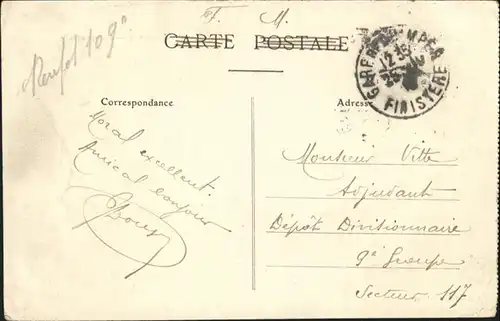 F. M.
CARTE POSTALE
109e
GARE DE QUIMPER
12 35
FINISTERE
Correspondance
Adresse
Moral excellent.
Amical bonjour
Monsieur Vitte
Adjudant
Dépôt Divisionnaire
9e Groupe
Secteur 117